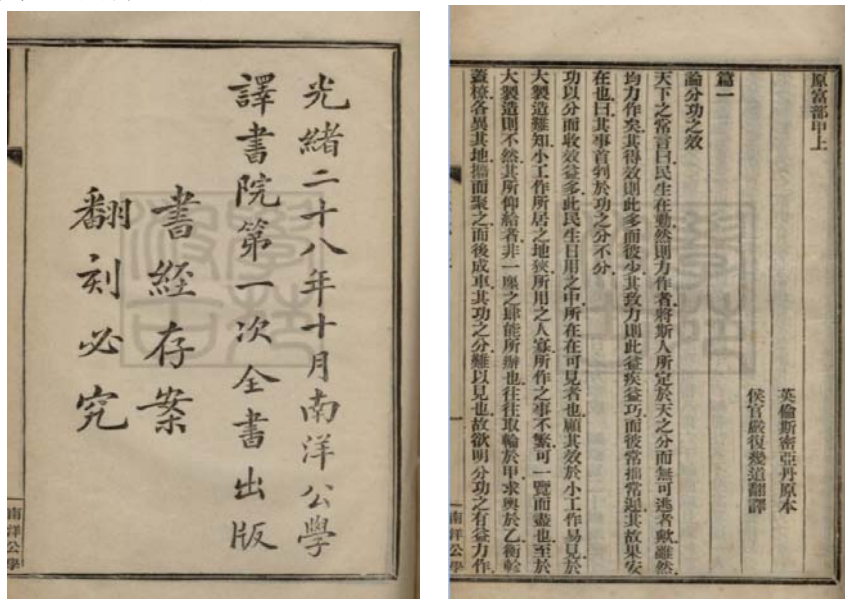 光緒二十八年十月南洋公學
譯書院第一次全書出版
書經存案
翻刻必究
南洋公學
原富部甲上
英倫斯密亞丹原本
侯官嚴復幾道翻譯
篇一
論分功之效
天下之常言曰民生在勤然則力作者將斯人所定於天之分而無可逃者歟雖然
均力作矣其得效則此多而彼少其致力則此益疾益巧而彼常拙常遲其故果安
在也曰其事首判於功之分不分
功以分而收效益多此民生日用之中所在在可見者也顧其效於小工作易見於
大製造難知小工作所居之地狹所用之人寡所作之事不繁可一覽而盡也至於
大製造則不然其所仰給者非一廛之肆能所辦也往往取輪於甲求輿於乙衡軫
蓋橑各異其地攢而聚之而後成車其功之分難以見也故欲明分功之有益力作
一
南洋公學